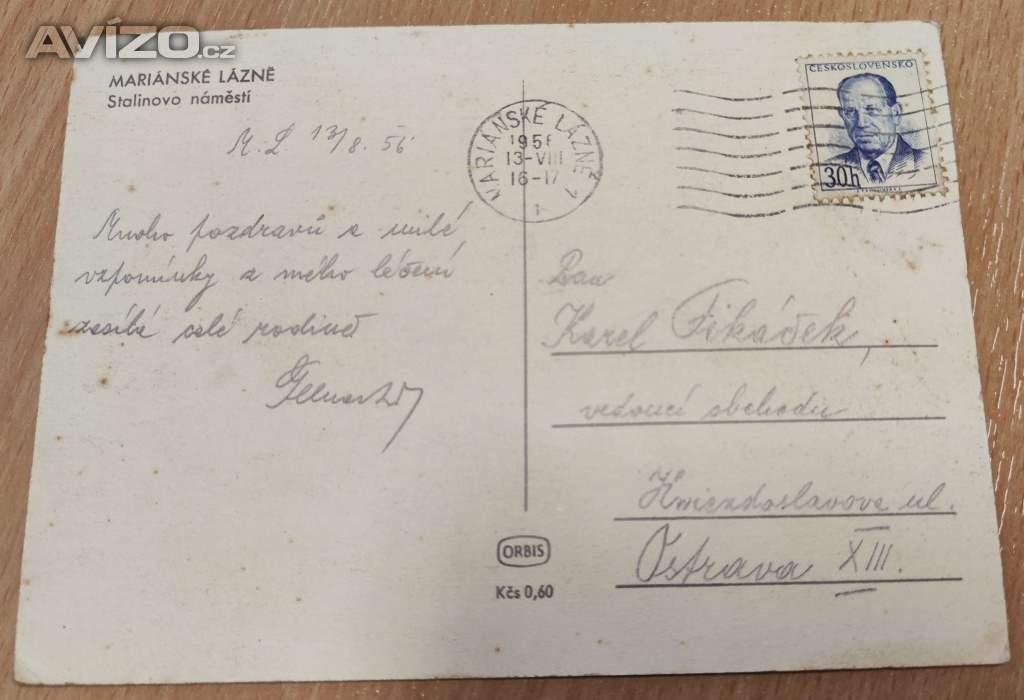 AVÍZO.cz
MARIÁNSKÉ LÁZNĚ
Stalinovo náměstí
M. L 13/8. 56
Mnoho pozdravů a milé
vzpomínky z mého léčení
zasílá celé rodině
MARIÁNSKÉ LÁZNĚ 1
1956
13-VIII
16-17
ČESKOSLOVENSKO
30h
Pan
Karel
vedoucí obchodu
Hwiezdoslavova ul.
Ostrava XIII.
ORBIS
Kčs 0,60